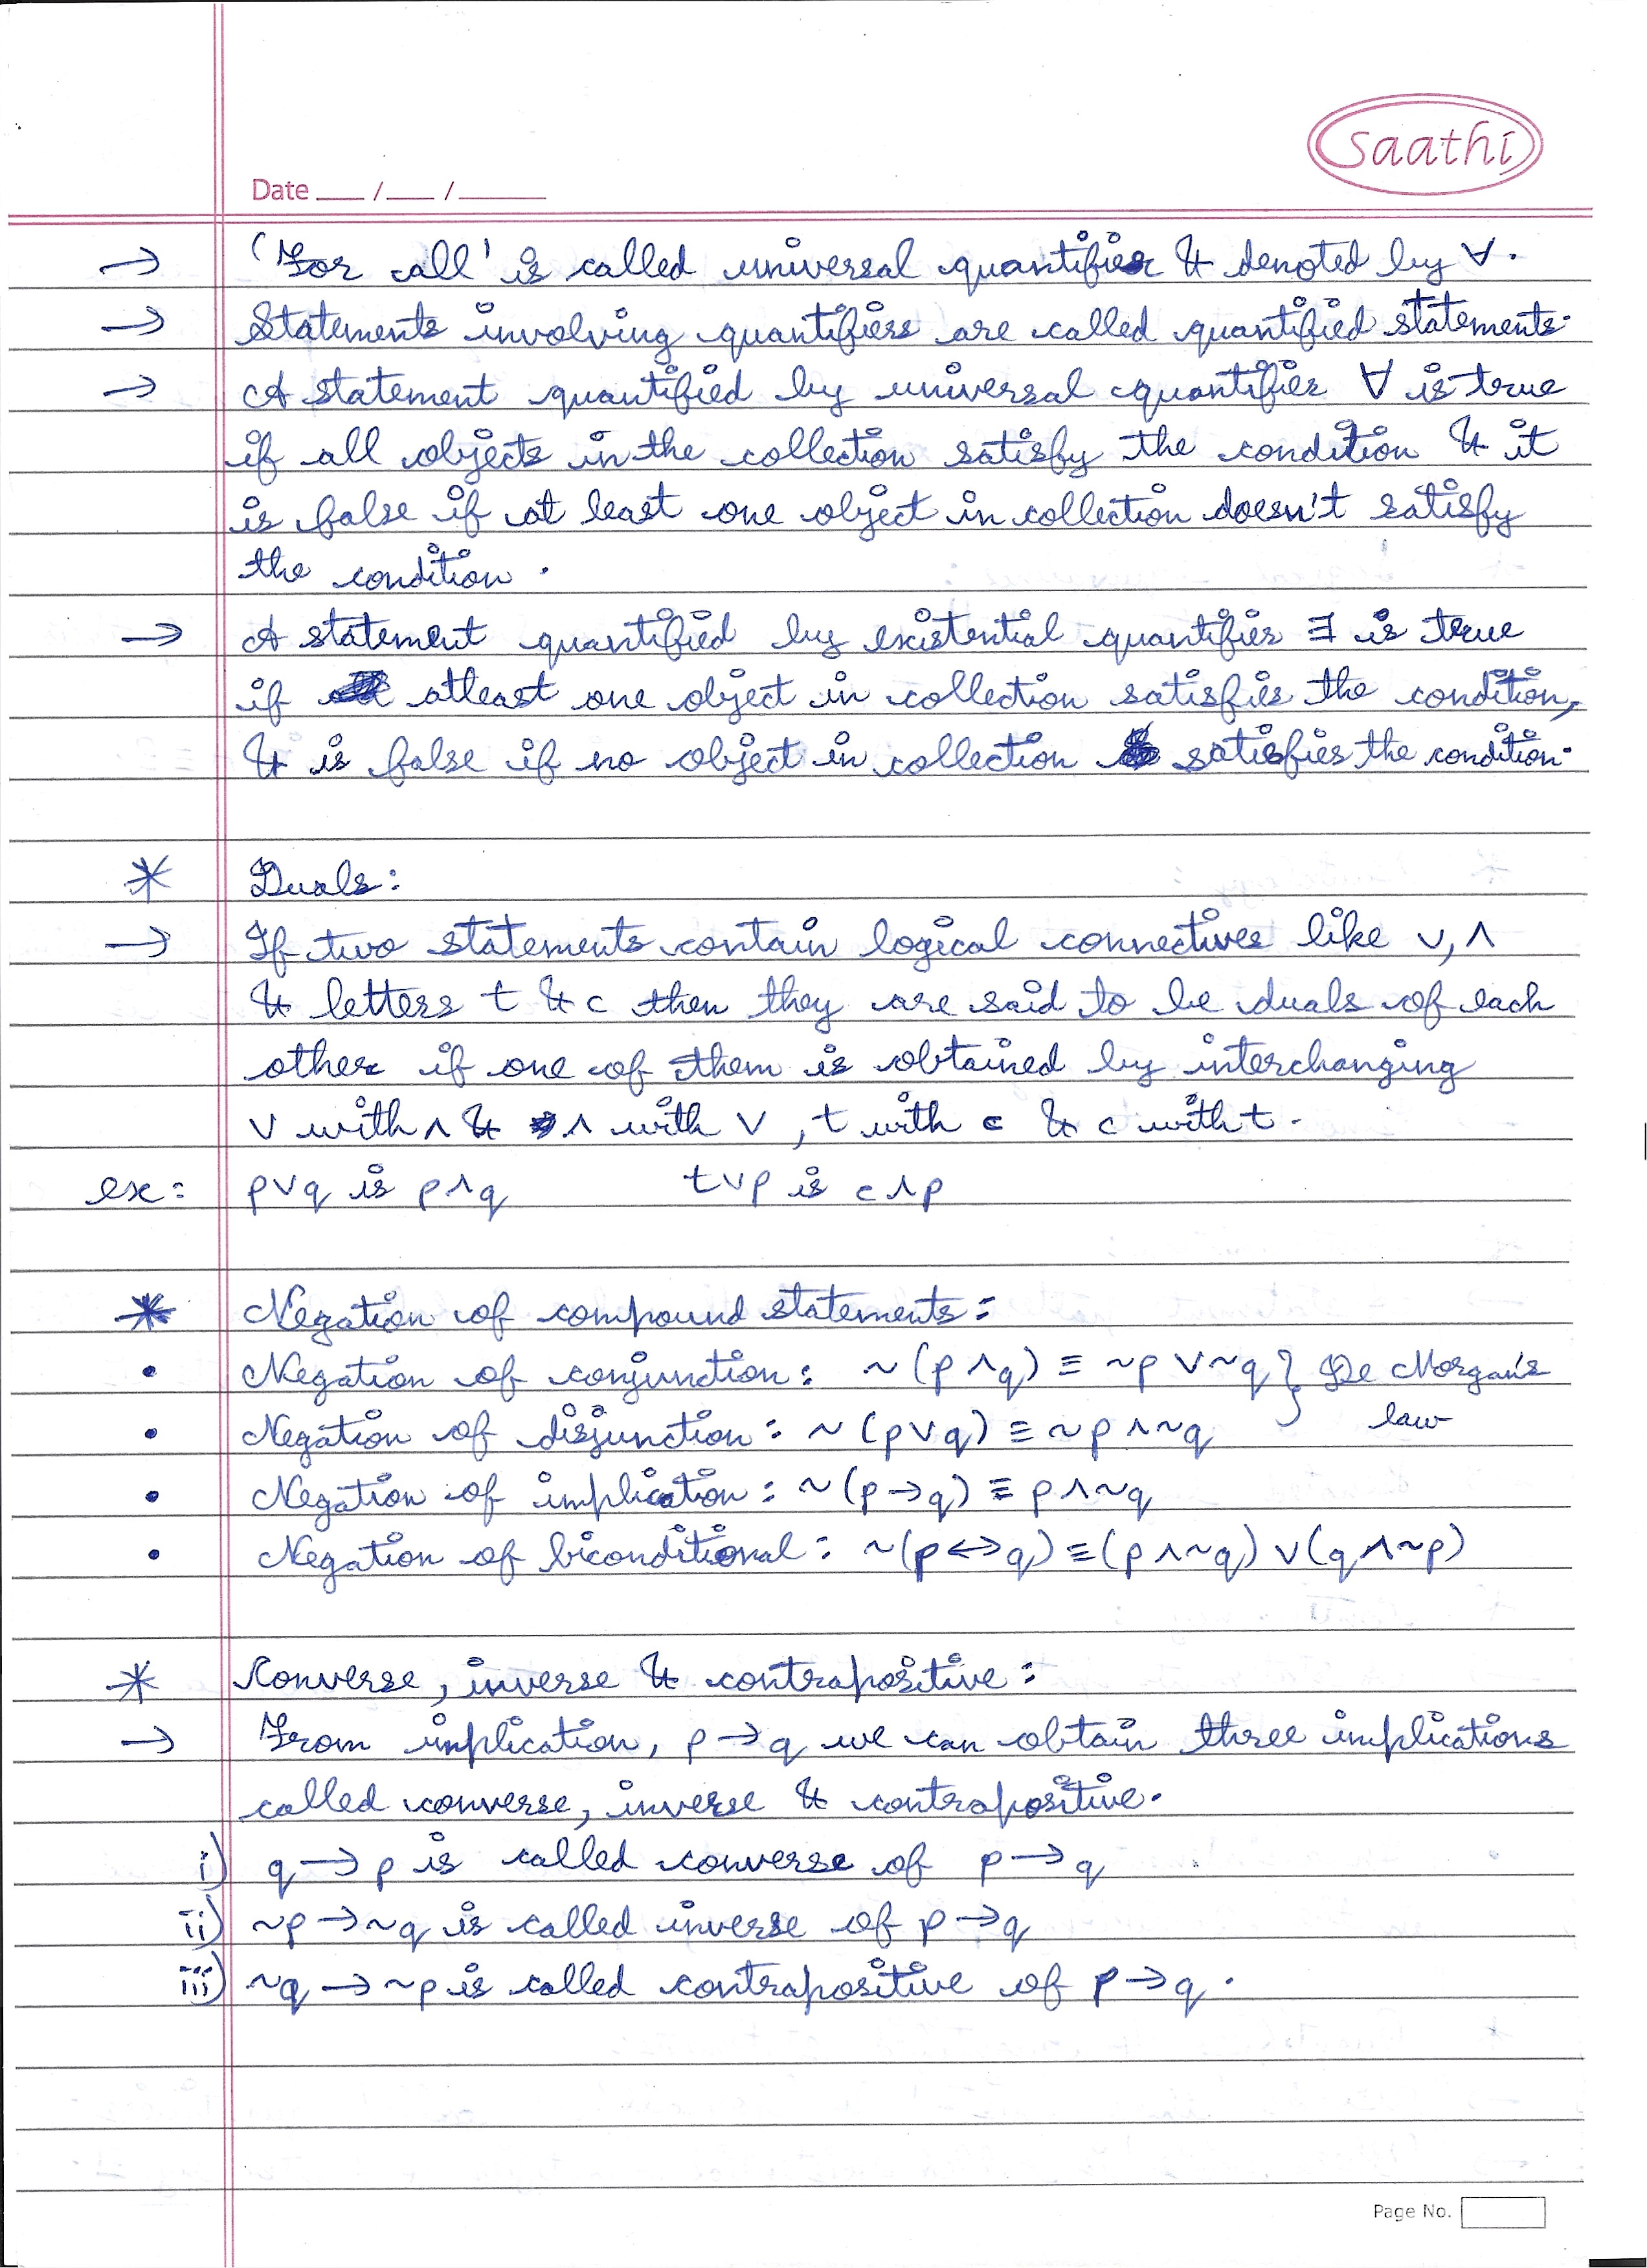 saathi
Date ___ / ___ / _____
→ 'For all' is called universal quantifier & denoted by ∀.
→ Statements involving quantifiers are called quantified statements.
→ A statement quantified by universal quantifier ∀ is true
if all objects in the collection satisfy the condition & it
is false if at least one object in collection doesn't satisfy
the condition.
→ A statement quantified by existential quantifier ∃ is true
if atleast one object in collection satisfies the condition,
& is false if no object in collection satisfies the condition.
* Duals:
→ If two statements contain logical connectives like ∨, ∧
& letters t & c then they are said to be duals of each
other if one of them is obtained by interchanging
∨ with ∧ & ∧ with ∨, t with c & c with t.
ex: p∨q is p∧q t∨p is c∧p
* Negation of compound statements:
• Negation of conjunction: ~(p∧q) ≡ ~p ∨ ~q } De Morgan's
law
• Negation of disjunction: ~(p∨q) ≡ ~p ∧ ~q
• Negation of implication: ~(p→q) ≡ p∧~q
• Negation of biconditional: ~(p↔q) ≡ (p∧~q) ∨ (q∧~p)
* Converse, inverse & contrapositive:
→ From implication, p→q we can obtain three implications
called converse, inverse & contrapositive.
i) q→p is called converse of p→q
ii) ~p→~q is called inverse of p→q
iii) ~q→~p is called contrapositive of p→q.
Page No.